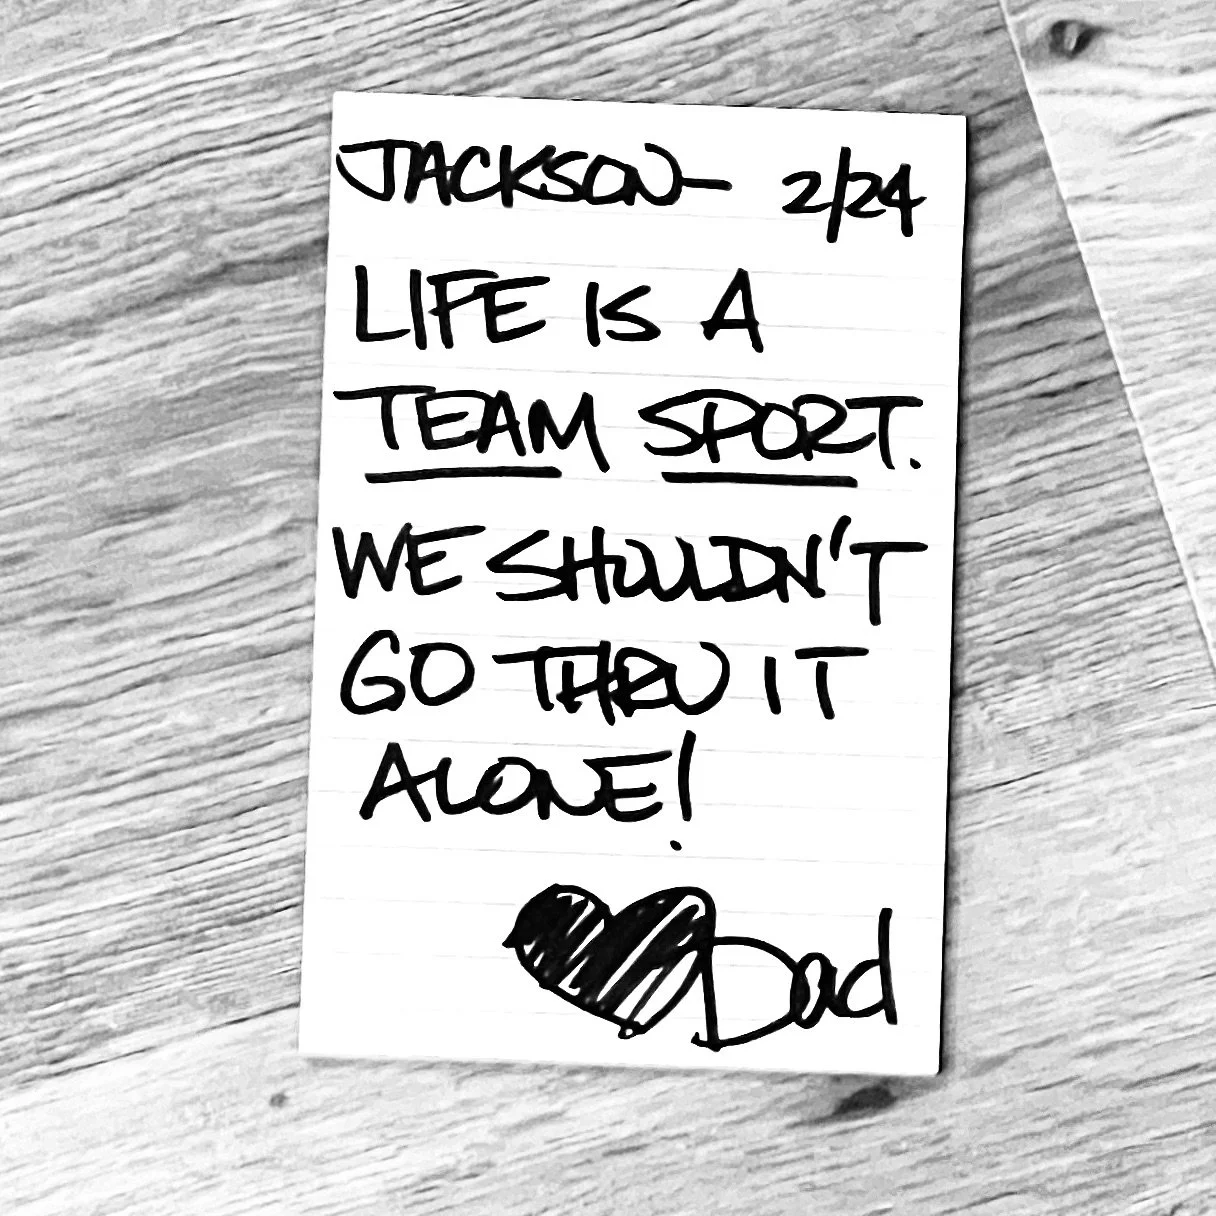 JACKSON— 2/24
LIFE IS A
TEAM SPORT.
WE SHOULDN'T
GO THRU IT
ALONE!
Dad